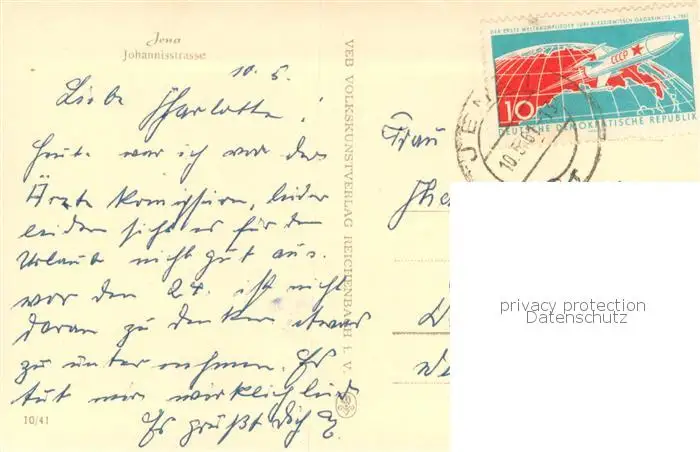 Jena
Johannisstrasse
10. 5.
Liebe Charlotte!
Heute war ich vor der
Ärzte Komission, leider
leider sieht es für den
Urlaub nicht gut aus.
vor den 24. ist nicht
daran zu denken etwas
zu unternehmen. Es
tut mir wirklich leid
Es grüßt Dich
10/41
VEB VOLKSKUNSTVERLAG REICHENBACH I. V.
DER ERSTE WELTRAUMFLIEGER JURI ALEXEJEWITSCH GAGARIN 12.4.1961
CCCP
10
DEUTSCHE DEMOKRATISCHE REPUBLIK
JENA
Frau
privacy protection
Datenschutz